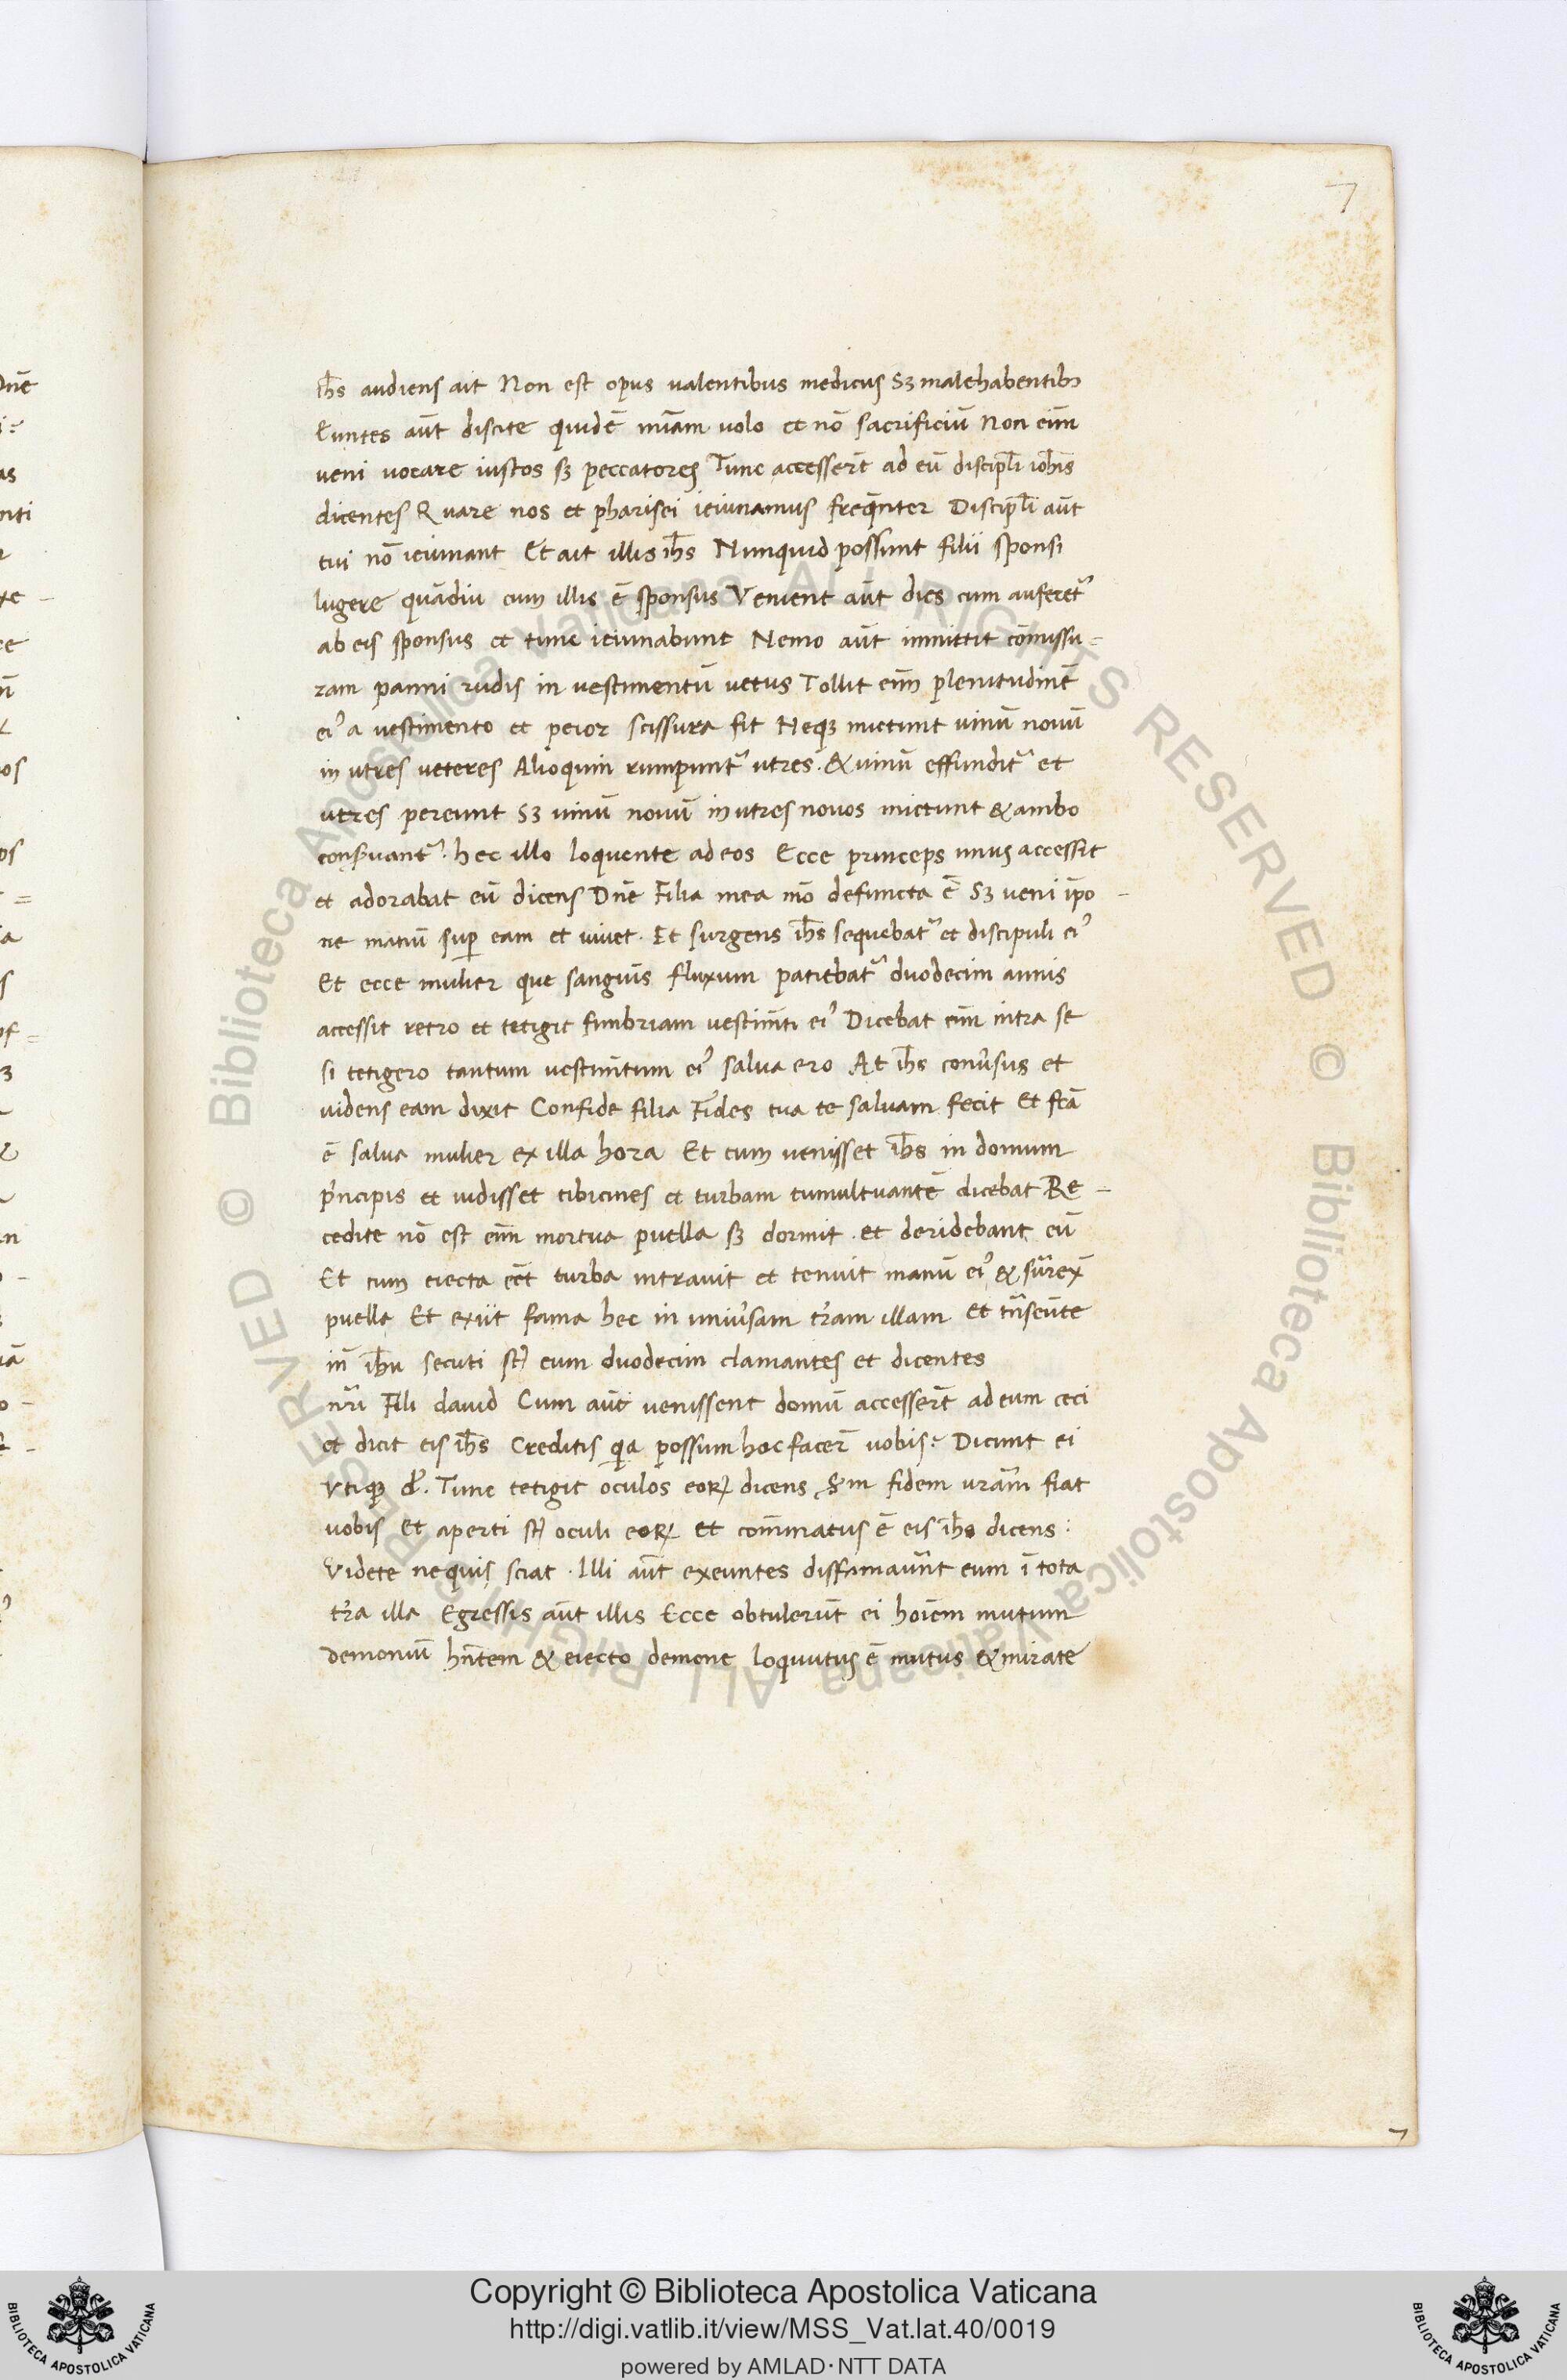 7
ih̅s audiens ait Non est opus valentibus medicus Sꝫ malehabentibꝫ
Euntes aūt discite quidē mīam volo et nō sacrificiū Non eīm
veni vocare iustos sꝫ peccatores Tunc accesserūt ad eū discipl̄i ioh̄is
dicentes Quare nos et pharisei ieiunamus freq̄nter Discipl̄i aūt
tui nō ieiunant Et ait illis ih̅s Nunquid possunt filii sponsi
lugere quādiu cum illis ē sponsus Venient aūt dies cum auferet᷑
ab eis sponsus et tunc ieiunabunt Nemo aūt immittit cōmissu=
ram panni rudis in vestimentū vetus Tollit eīm plenitudinē
eiꝰ a vestimento et peior scissura fit Neqꝫ mictunt vinū novū
in utres veteres Alioquin rumpunt᷑ utres. & vinū effundit᷑ et
utres pereunt Sꝫ vinū novū in utres novos mictunt & ambo
conẜvant᷑. hec illo loquente ad eos Ecce princeps unus accessit
et adorabat eū dicens Dn̄e Filia mea mō defuncta ē Sꝫ veni īpo -
ne manū suꝑ eam et vivet. Et surgens ih̅s sequebat᷑ et discipuli eiꝰ
Et ecce mulier que sanguīs fluxum patiebat᷑ duodecim annis
accessit retro et tetigit fimbriam vestim̄ti eiꝰ Dicebat eīm intra se
si tetigero tantum vestim̄tum eiꝰ salva ero At ih̅s conv̄sus et
videns eam dixit Confide filia Fides tua te salvam fecit Et fc̄a
ē salva mulier ex illa hora Et cum venisset ih̅s in domum
p̄ncipis et vidisset tibicines et turbam tumultuantē dicebat Re -
cedite nō est eīm mortua puella sꝫ dormit. et deridebant eū
Et cum eiecta eēt turba intravit et tenuit manū eiꝰ & surrex̄
puella Et exiit fama hec in univ̄sam t̄ram illam Et tn̄seūte
in̄ ih̅u secuti st̄ eum duodecim clamantes et dicentes
nr̄i Fili david Cum aūt venissent domū accesserūt ad eum ceci
et dicit eis ih̅s Creditis qia possum hoc facer̄ vobis? Dicunt ei
Utiqꝫ dn̄e. Tunc tetigit oculos eoꝝ dicens Scdm fidem vr̄am fiat
vobis Et aperti st̄ oculi eoꝝ et com̄inatus ē eis ih̅s dicens:
Videte ne quis sciat. Illi aūt exeuntes diffamav̄unt eum ī tota
t̄ra illa Egressis aūt illis Ecce obtulerūt ei hoīem mutum
demoniū hn̄tem & eiecto demone loquutus ē mutus & mirate
7
Copyright © Biblioteca Apostolica Vaticana
http://digi.vatlib.it/view/MSS_Vat.lat.40/0019
powered by AMLAD・NTT DATA